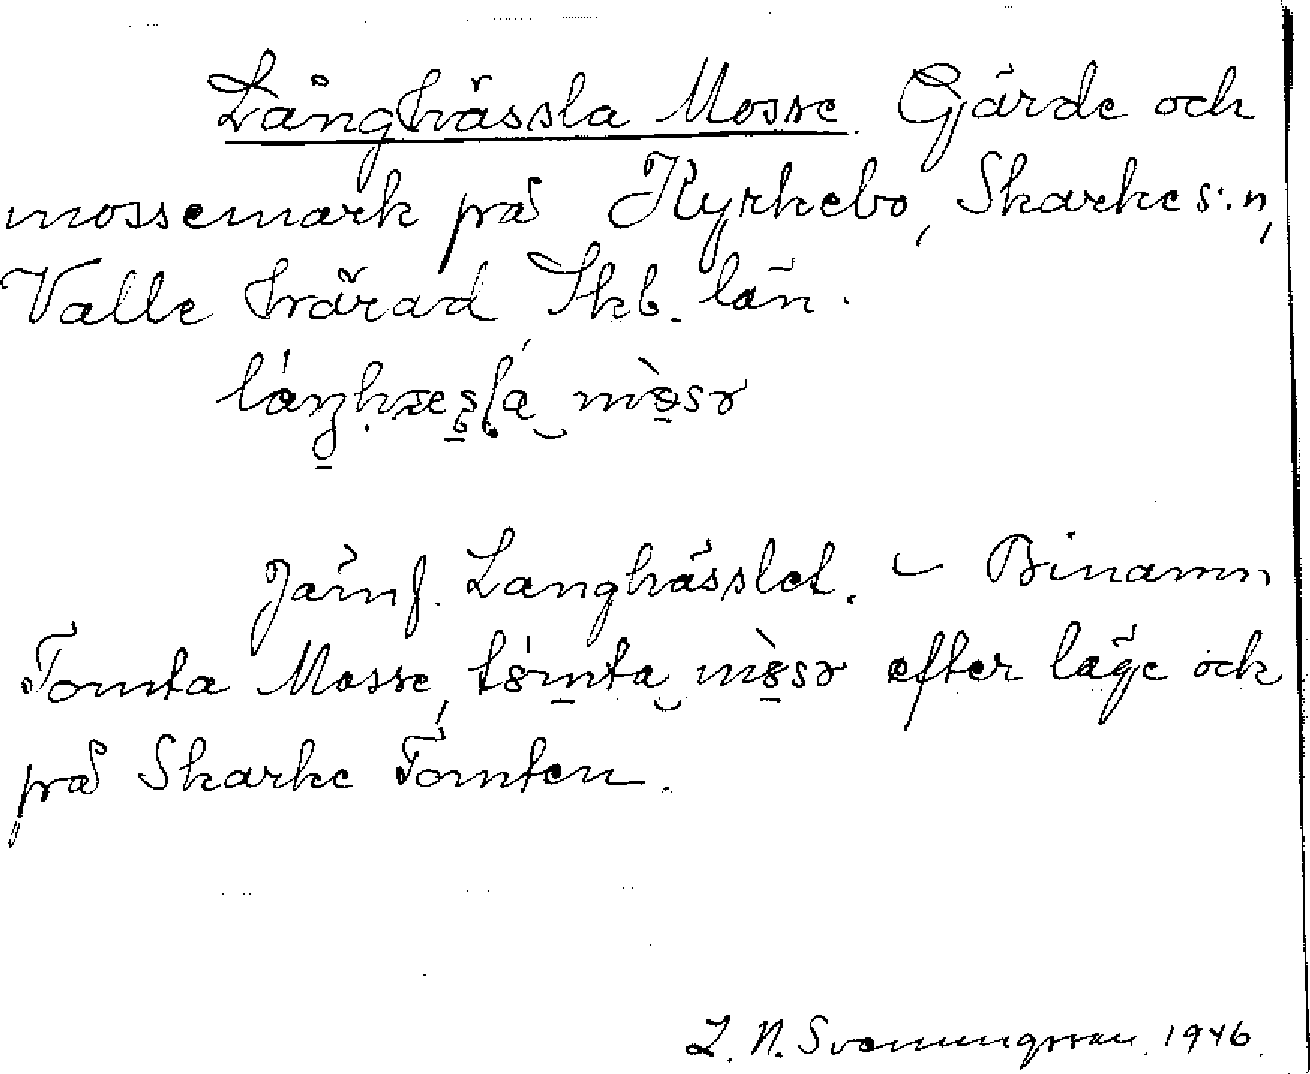 Långhässla Mosse. Gärde och
mossemark på Kyrkebo, Skarke s:n,
Valle härad Skb. län.
Jämf. Langhässlet. – Binamn
Tomta Mosse, efter läge och
på Skarke Tomten.
L. N. Svenungsson. 1946.